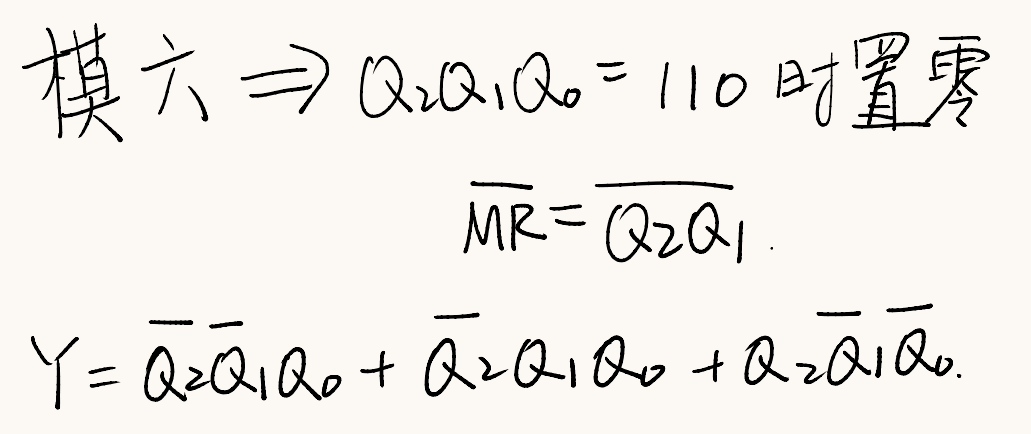 模六 ⇒ Q₂Q₁Q₀ = 110 时置零
M̅R̅ = \overline{Q₂Q₁}.
Y = \overline{Q₂}\overline{Q₁}Q₀ + \overline{Q₂}Q₁Q₀ + Q₂\overline{Q₁}\overline{Q₀}.